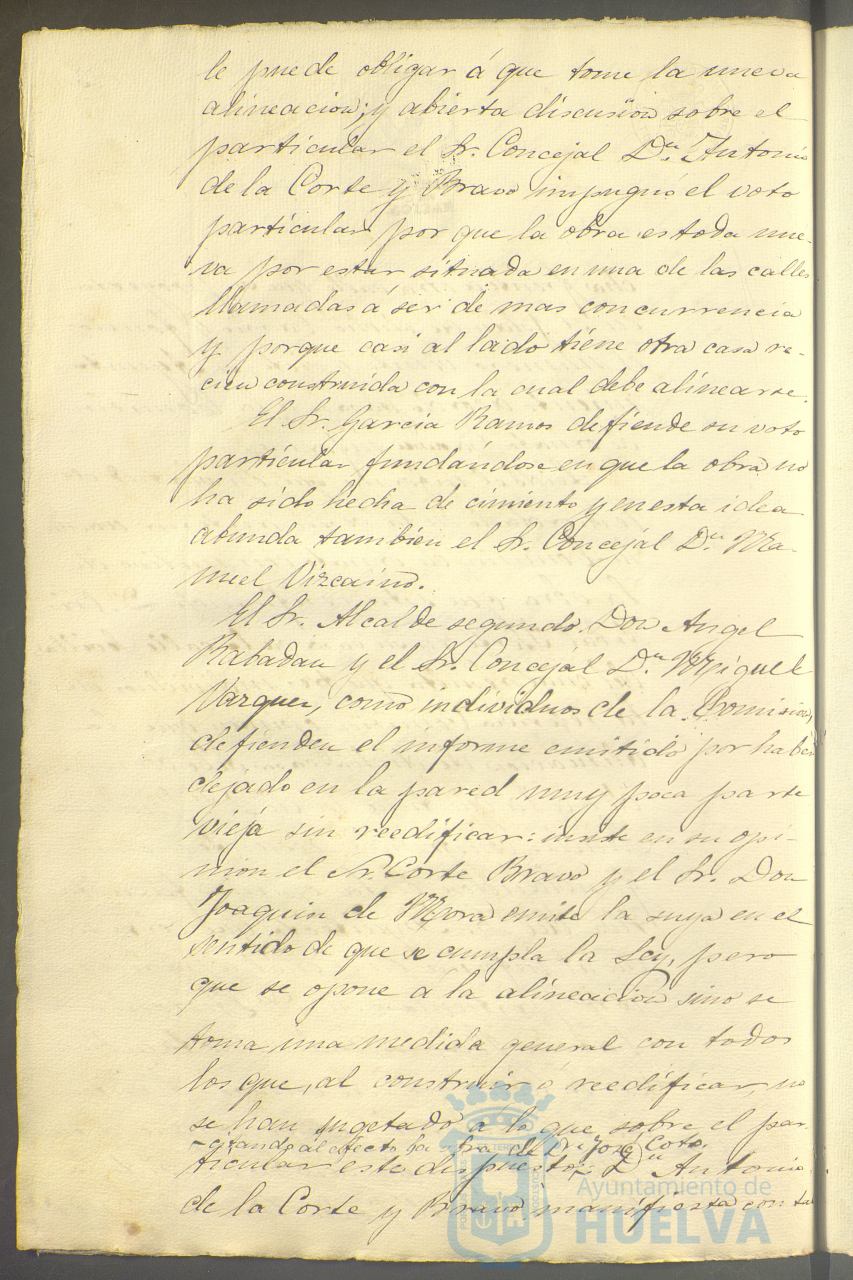 le puede obligar á que tome la nueva
alineacion; y abierta discusion sobre el
particular el Sr. Concejal Dn. Antonio
de la Corte y Bravo impugnó el voto
particular por que la obra es toda nue-
va por estar situada en una de las calles
llamadas á ser de mas concurrencia
y porque casi al lado tiene otra casa re-
cien construida con la cual debe alinearse.
El Sr. Garcia Ramos defiende su voto
particular fundándose en que la obra no
ha sido hecha de cimiento y en esta idea
abunda tambien el Sr. Concejal Dn. Ma-
nuel Vizcaino.
El Sr. Alcalde segundo Don Angel
Rabadan y el Sr. Concejal Dn. Miguel
Vazquez, como individuos de la Comision,
defienden el informe emitido por haber
dejado en la pared muy poca parte
vieja sin reedificar: insiste en su opi-
nion el Sr. Corte Bravo y el Sr. Don
Joaquin de Mora emite la suya en el
sentido de que se cumpla la Ley, pero
que se opone a la alineacion sino se
toma una medida general con todos
los que, al construir ó reedificar, no
se han sugetado a lo que sobre el par-
-citando al efecto la obra de Dn. José Coto,
ticular está dispuesto; Dn. Antonio
de la Corte y Bravo manifiesta con tu
Ayuntamiento de
HUELVA